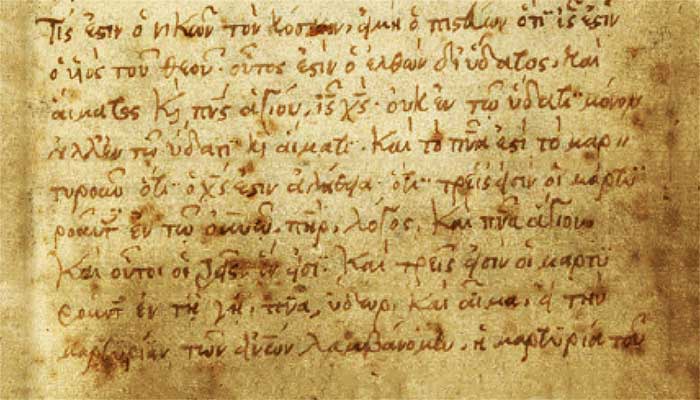 Τίς ἐστιν ὁ νικῶν τὸν κόσμον, εἰ μὴ ὁ πιστεύων ὅτι ἰ̅ς̅ ἐστιν
ὁ υἱὸς τοῦ θεοῦ· οὗτος ἐστιν ὁ ἐλθὼν δι' ὕδατος, καὶ
αἵματος κ̀ π̅ν̅ς̅ ἁγίου, ἰ̅ς̅ χ̅ς̅· οὐκ ἐν τῷ ὕδατι μόνον
ἀλλ' ἐν τῷ ὕδατι κ̀ αἵματι· καὶ τὸ π̅ν̅α̅ ἐστὶ τὸ μαρ
τυροῦν ὅτι ὁ χ̅ς̅ ἐστιν ἀλήθεια· ὅτι τρεῖς εἰσιν οἱ μαρτυ
ροῦντ̅ ἐν τῷ ο̅υ̅ν̅ῷ̅, π̅η̅ρ̅, λόγος, καὶ π̅ν̅α̅ ἅγιον,
καὶ οὗτοι οἱ τρεῖς ἕν εἰσι· καὶ τρεῖς εἰσιν οἱ μαρτυ
ροῦντ̅ ἐν τῇ γῇ, π̅ν̅α̅, ὕδωρ, καὶ αἷμα, εἰ τὴν
μαρτυρίαν τῶν ἀ̅ν̅ω̅ν̅ λαμβάνομεν, ἡ μαρτυρία τοῦ